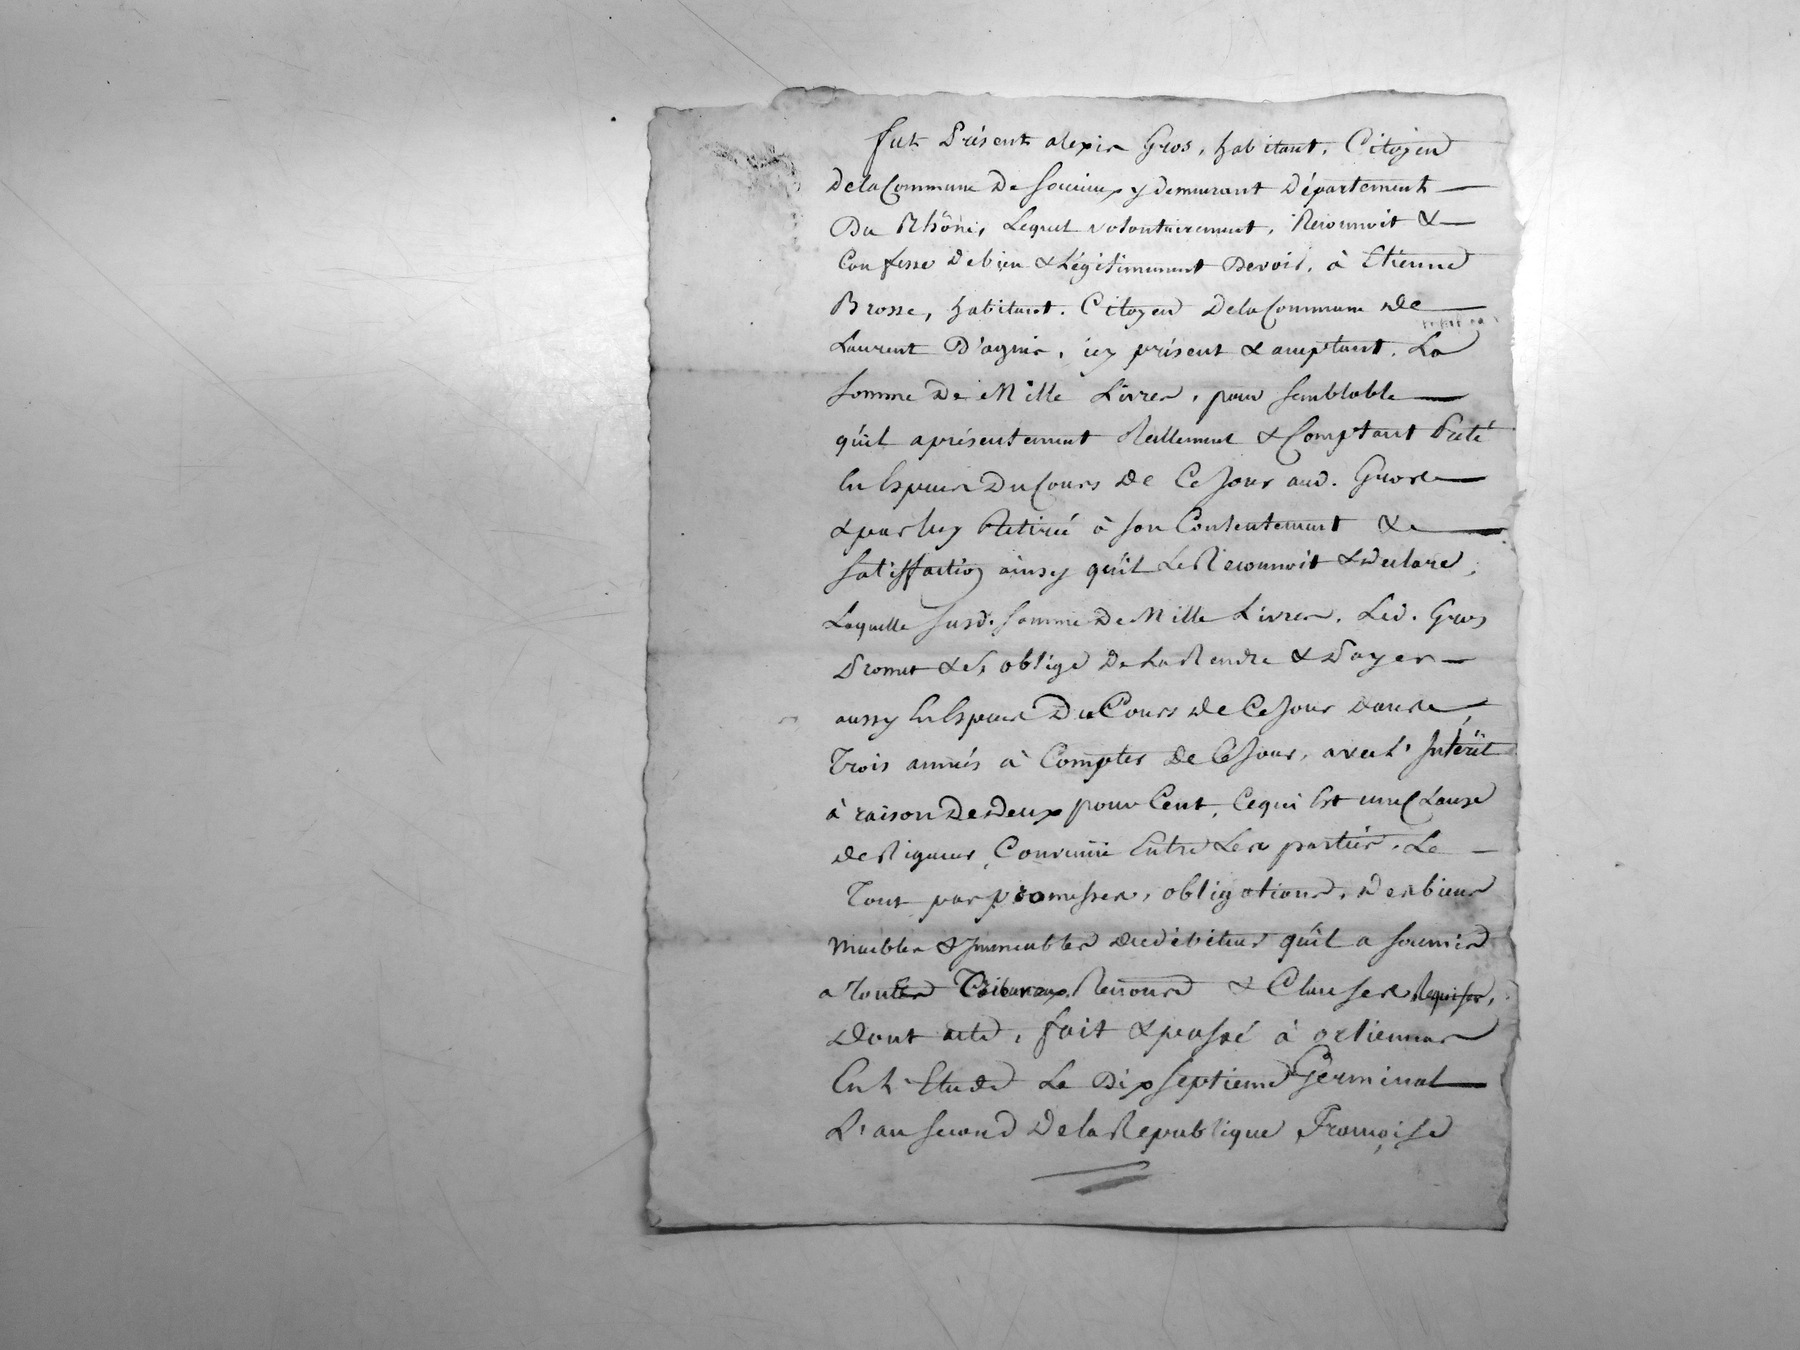 fut Présent alexis Gros, habitant, Citoyen
De la Commune De Soucieux y demeurant Département
Du Rhône, Lequel volontairement, Reconnoit &
Confesse de bien & Légitimement Devoir, à Etienne
Brosse, habitant. Citoyen De la Commune De
Laurent D'agnis, icy présent & acceptant. La
Somme De Mille Livres, pour semblable
qu'il a présentement Reellement & Comptant Preté
En Especes Du Cours De Ce Jour aud. Gros
& par luy Retiré à son Contentement &
Satisffaction ainsy qu'il Le Reconnoit & Declare,
Laquelle susd. Somme De Mille Livres, Led. Gros
Promet & s'oblige De La Rendre & Payer
aussy En Especes Du Cours De Ce Jour Dans
Trois années à Compter De Ce Jour, avec l'Intérêt
à raison De Deux pour Cent, Ce qui Est une Clause
de Rigueur Convenüe Entre Les parties. Le
Tout par promesses, obligations, Des biens
Meubles & Immeubles du débiteur qu'il a soumis
a Toutes Tribunaux, Renonce & Clauses Requises,
Dont acte, fait & passé à orlienas
En L'Etude Le Dix septieme Germinal
L'an second De la Republique Françoise